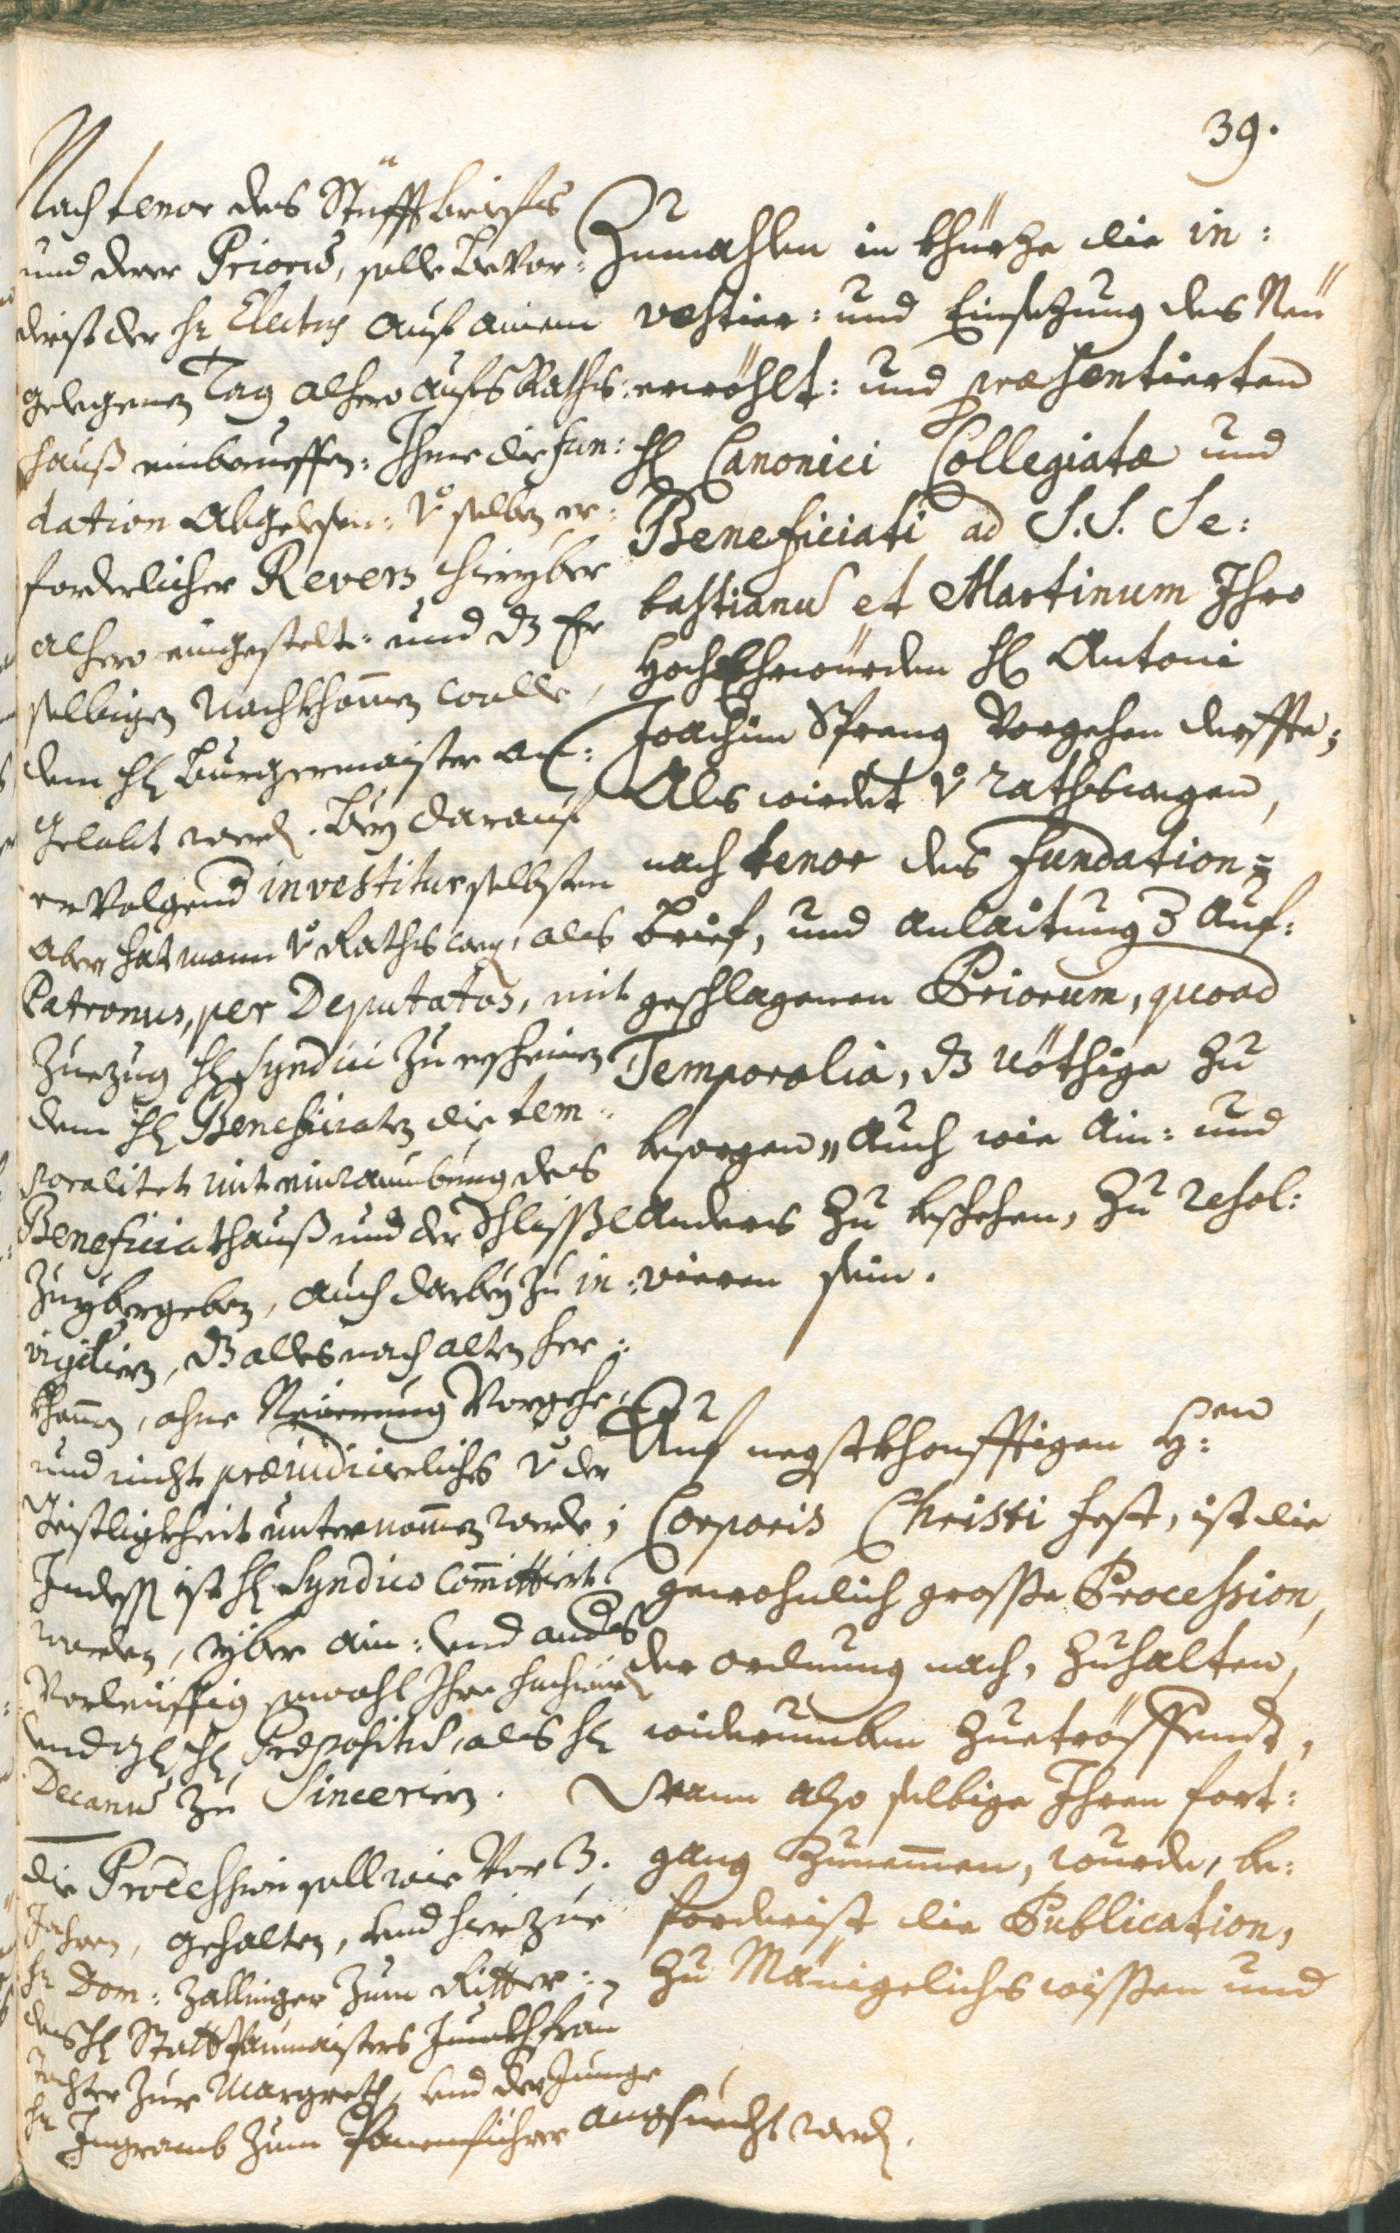 39.
Nach tenor des Stüfftbriefs
und derer Priorũ, solle bevor-
derist der Hr Electus auf ainem
gelegenen Tag alhero aufs Rathß:
hauß einberueffen: Ihme die fun:
dation abgelesen: v̊ selben er:
forderlicher Revers hieryber
alhero eingestelt: und dz Er
selbigen nachkhom̄en wolle,
dem H: Burgermaister an:
gelobt werd. Bey darauf
ervolgend investitur selbsten
aber hat mann v̊ Raths weg, als
Patronus, per Deputatos, mit
Zuezug H: Syndici zu erscheinen
dem H: Beneficiaten die tem:
poralitet mit einraumbung des
Beneficiathauß und der Schlissl
zuybergeben, auch darbey zu in:
vigilieren, dz alles nach alten her:
khom̄en, ohne Neüerung vorgehe,
und nicht præiudicierliches v̊ der
Geistligkheit unternom̄en werde;
Indess ist H: Syndico com̄ittiert
worden, yber ain: und anders
vorleüffig sowohl Ihro hochwürd
und H: Præpositũ, als H:
Decanũ zu Sincerirn.
Die Procession soll wie vor 3.
Jahren, gehalten, und hierzue
Hr Dom: Zallinger zum Ritter:,
des H: Statt Paumaisters Junckhfrau
Tochter zur Margreth, und der Junge
Hr Ingramb zum Fanenführer angsuecht werd.
Zumahlen in khürze die in:
vestier: und Einsezung des Neü
erwöhlt: und præsentierten
H: Canonici Collegiatæ und
Beneficiati ad S.S. Se:
bastianũ et Martinum Ihro
HochEhrwürden H: Antoni
Joachim Spreng vorgehen derffte;
Als wirdet v̊ rathswegen,
nach tenor des Fundation=
Brief, und anlaitung d' auf:
geschlagenen Priorum, quoad
Temporalia, dz nöthige zu
besorgen, auch wie ain: und
anders zu beschehen, zu resol:
vieren sein.
Auf negstkhonfftigen H:en
Corporis Christi fest, ist die
gewohnlich grosse Procession,
der ordnung nach, zuhalten,
widerumben zuetröffendt,
Wann also selbige Ihren fort:
gang zunemen, wurde, be:
forderist die Publication,
zu Mäniglichs wissen und